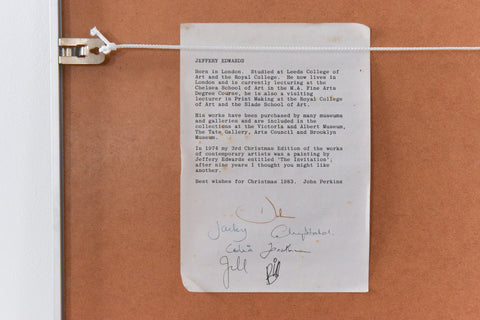 JEFFERY EDWARDS
Born in London. Studied at Leeds College of
Art and the Royal College. He now lives in
London and is currently lecturing at the
Chelsea School of Art in the M.A. Fine Arts
Degree Course, he is also a visiting
lecturer in Print Making at the Royal College
of Art and the Slade School of Art.
His works have been purchased by many museums
and galleries and are included in the
collections at the Victoria and Albert Museum,
The Tate Gallery, Arts Council and Brooklyn
Museum.
In 1974 my 3rd Christmas Edition of the works
of contemporary artists was a painting by
Jeffery Edwards entitled 'The Invitation';
after nine years I thought you might like
another.
Best wishes for Christmas 1983. John Perkins
Jacky
Celia
Jill Bill